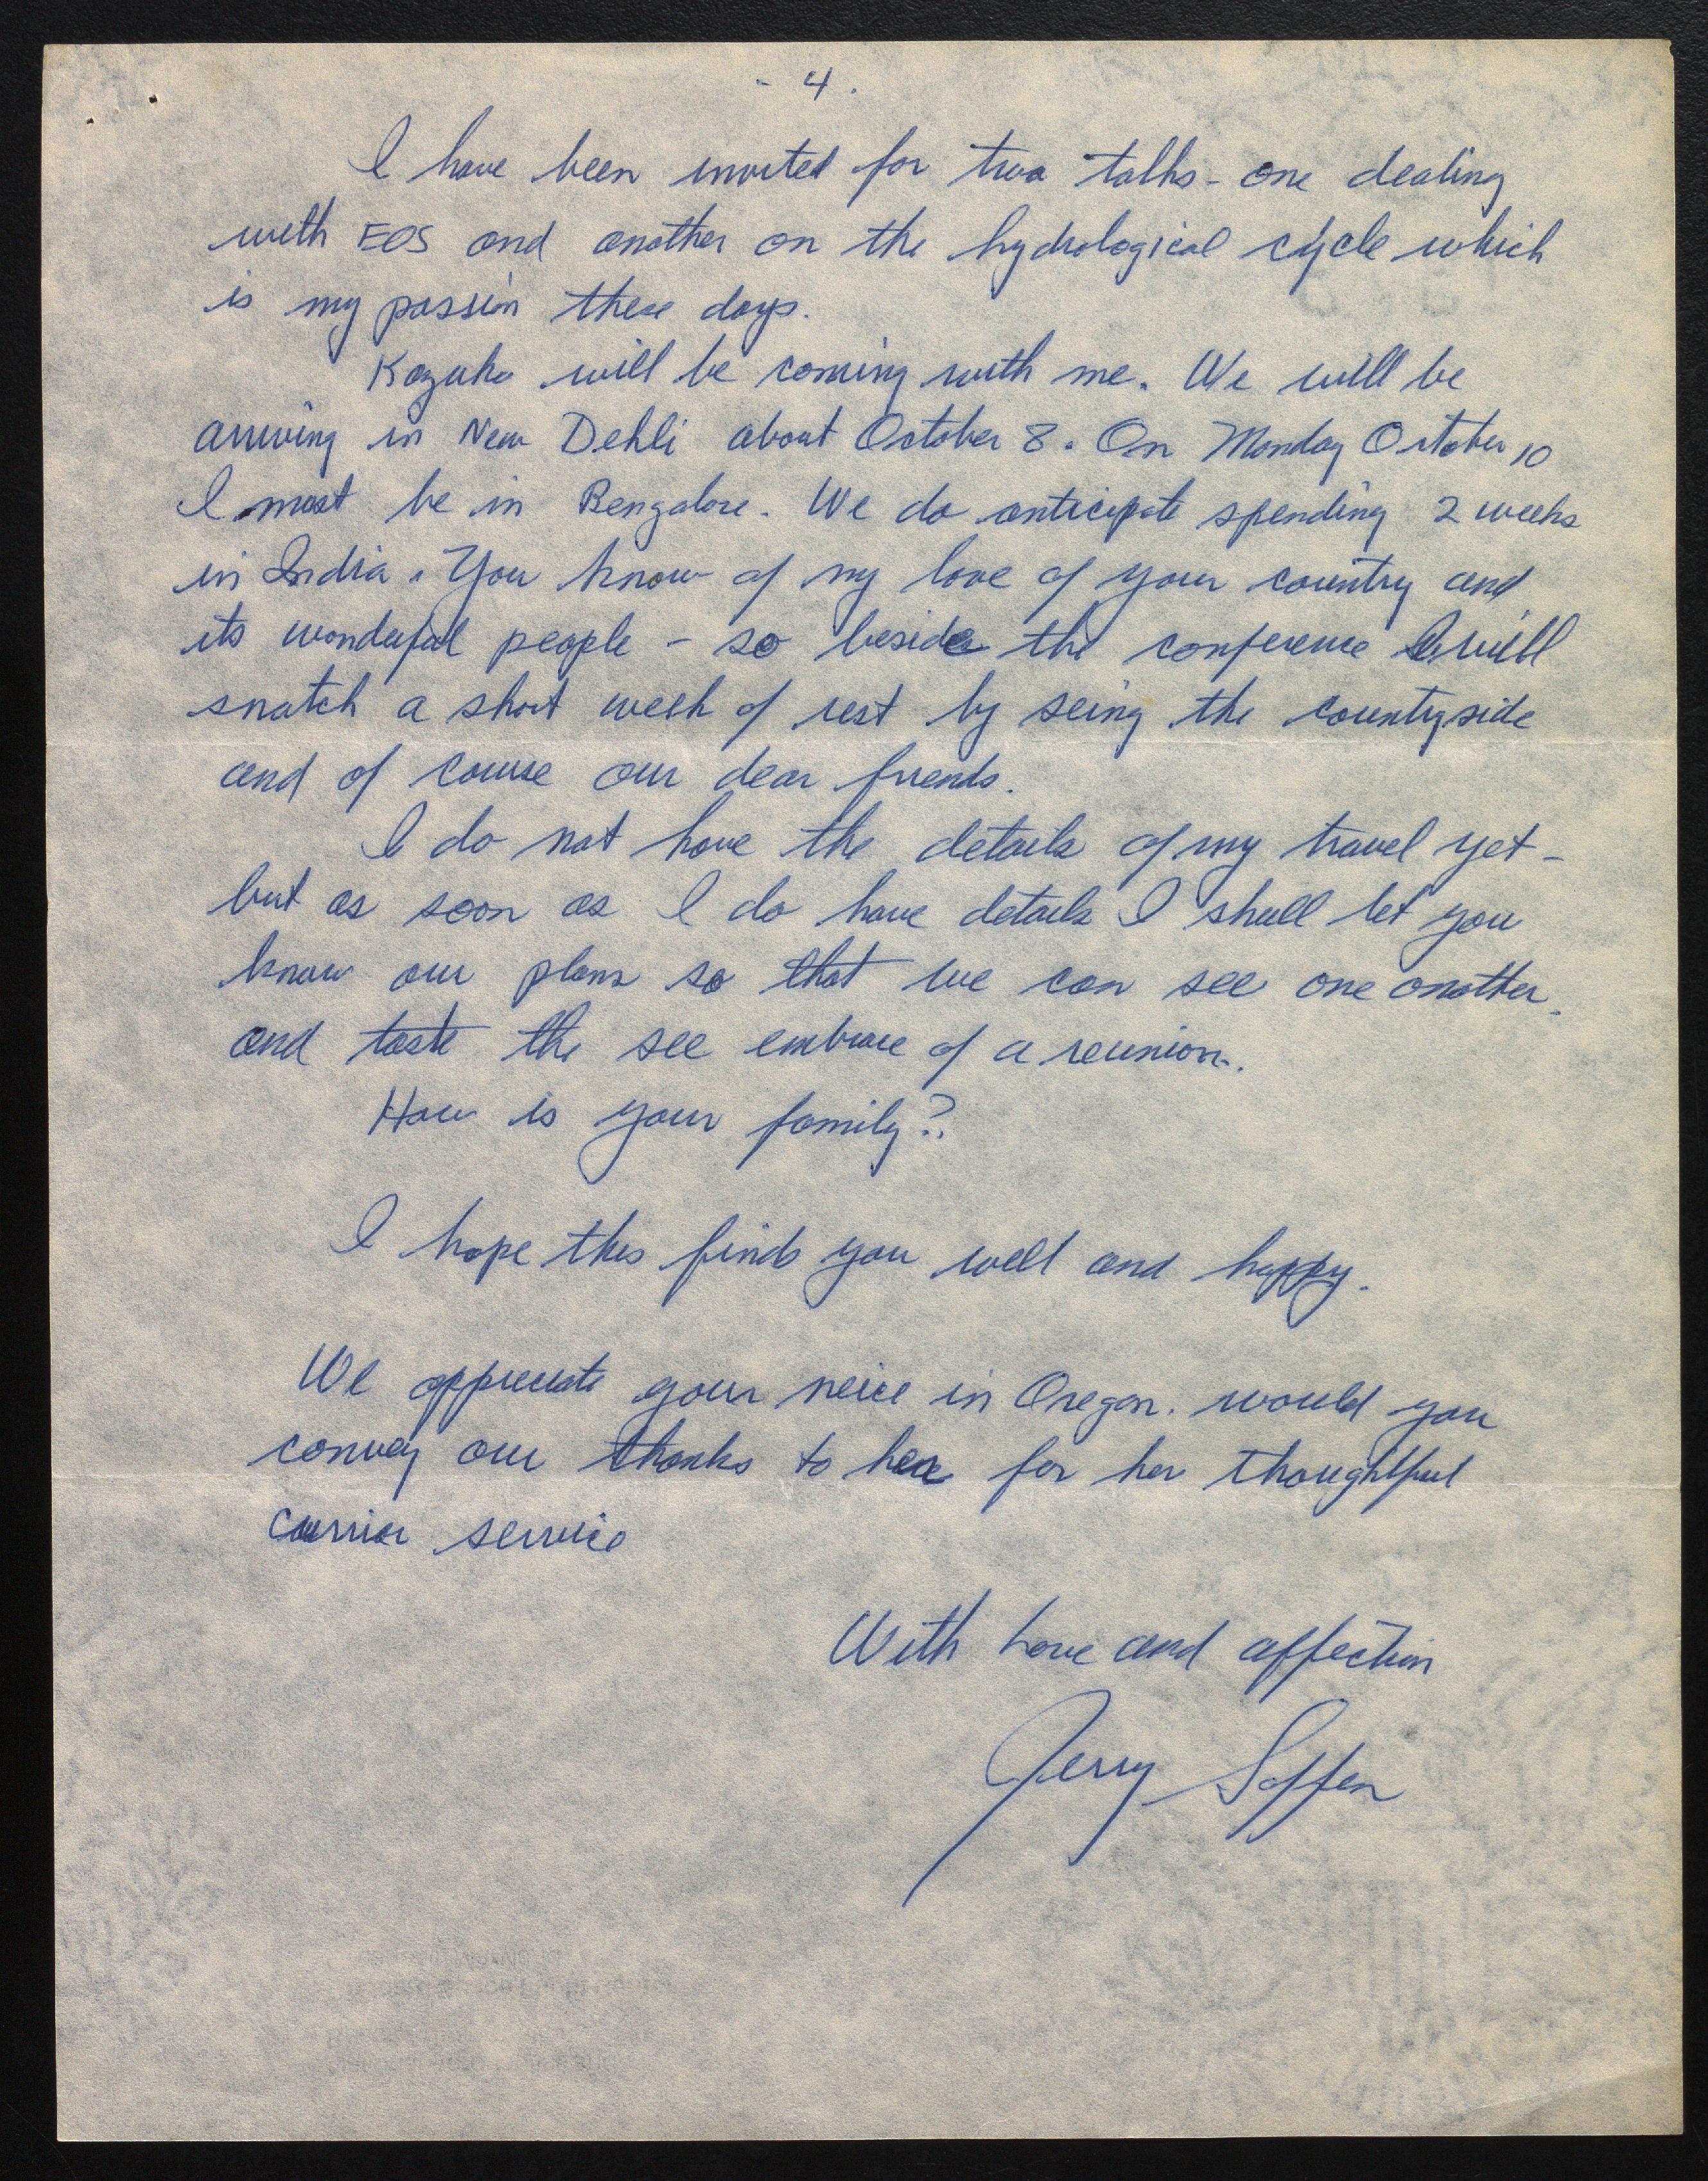 - 4.
I have been invited for two talks - one dealing
with EOS and another on the hydrological cycle which
is my passion these days.
Kazuko will be coming with me. We will be
arriving in New Dehli about October 8. On Monday October 10
I must be in Bengalore. We do anticipate spending 2 weeks
in India. You know of my love of your country and
its wonderful people - so beside the conference I will
snatch a short week of rest by seing the countryside
and of course our dear friends.
I do not have the details of my travel yet -
but as soon as I do have details I shall let you
know our plans so that we can see one another.
and taste the see embrace of a reunion.
How is your family?
I hope this finds you well and happy.
We appreciate your neice in Oregon. would you
convey our thanks to her for her thoughtful
currier service
With love and affection
Jerry Soffen